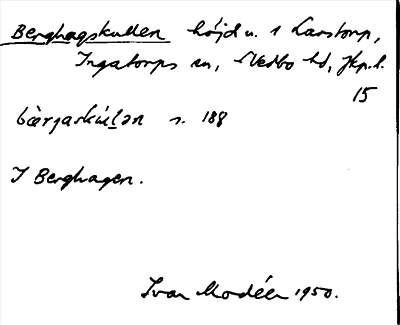 Berghagskullen höjd n. i Larstorp,
Ingatorps sn, N Vedbo hd, Jkp. l.
15
bær𝑗askúlən s. 188
I Berghagen.
Ivar Modéer 1950.